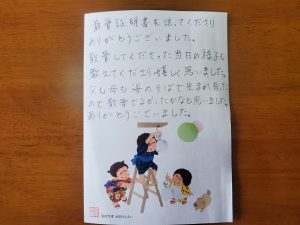 散骨証明書を送ってくださり
ありがとうございました。
散骨してくださった当日の様子も
教えてくださり嬉しく思いました。
父も母も海のそばで生まれ育った
ので散骨でよかったかなと思いました。
ありがとうございました。